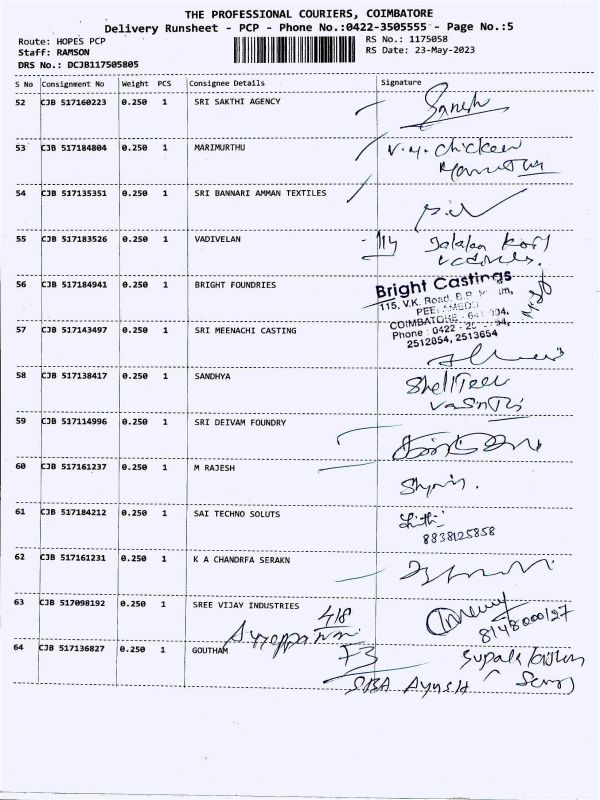 THE PROFESSIONAL COURIERS, COIMBATORE
Delivery Runsheet - PCP - Phone No.:0422-3505555 - Page No.:5
Route: HOPES PCP
RS No.: 1175058
Staff: RAMSON
RS Date: 23-May-2023
DRS No.: DCJB117505805
S No Consignment No Weight PCS Consignee Details Signature
52 CJB 517160223 0.250 1 SRI SAKTHI AGENCY
53 CJB 517184804 0.250 1 MARIMURTHU V.M. Chicken
54 CJB 517135351 0.250 1 SRI BANNARI AMMAN TEXTILES
55 CJB 517183526 0.250 1 VADIVELAN
56 CJB 517184941 0.250 1 BRIGHT FOUNDRIES
Bright Castings
115, V.K. Road,
COIMBATORE
Phone : 0422
2512854, 2513654
57 CJB 517143497 0.250 1 SRI MEENACHI CASTING
58 CJB 517138417 0.250 1 SANDHYA
59 CJB 517114996 0.250 1 SRI DEIVAM FOUNDRY
60 CJB 517161237 0.250 1 M RAJESH
61 CJB 517184212 0.250 1 SAI TECHNO SOLUTS
8838125858
62 CJB 517161231 0.250 1 K A CHANDRFA SERAKN
63 CJB 517098192 0.250 1 SREE VIJAY INDUSTRIES
418
8148000127
64 CJB 517136827 0.250 1 GOUTHAM F3
AYUSH